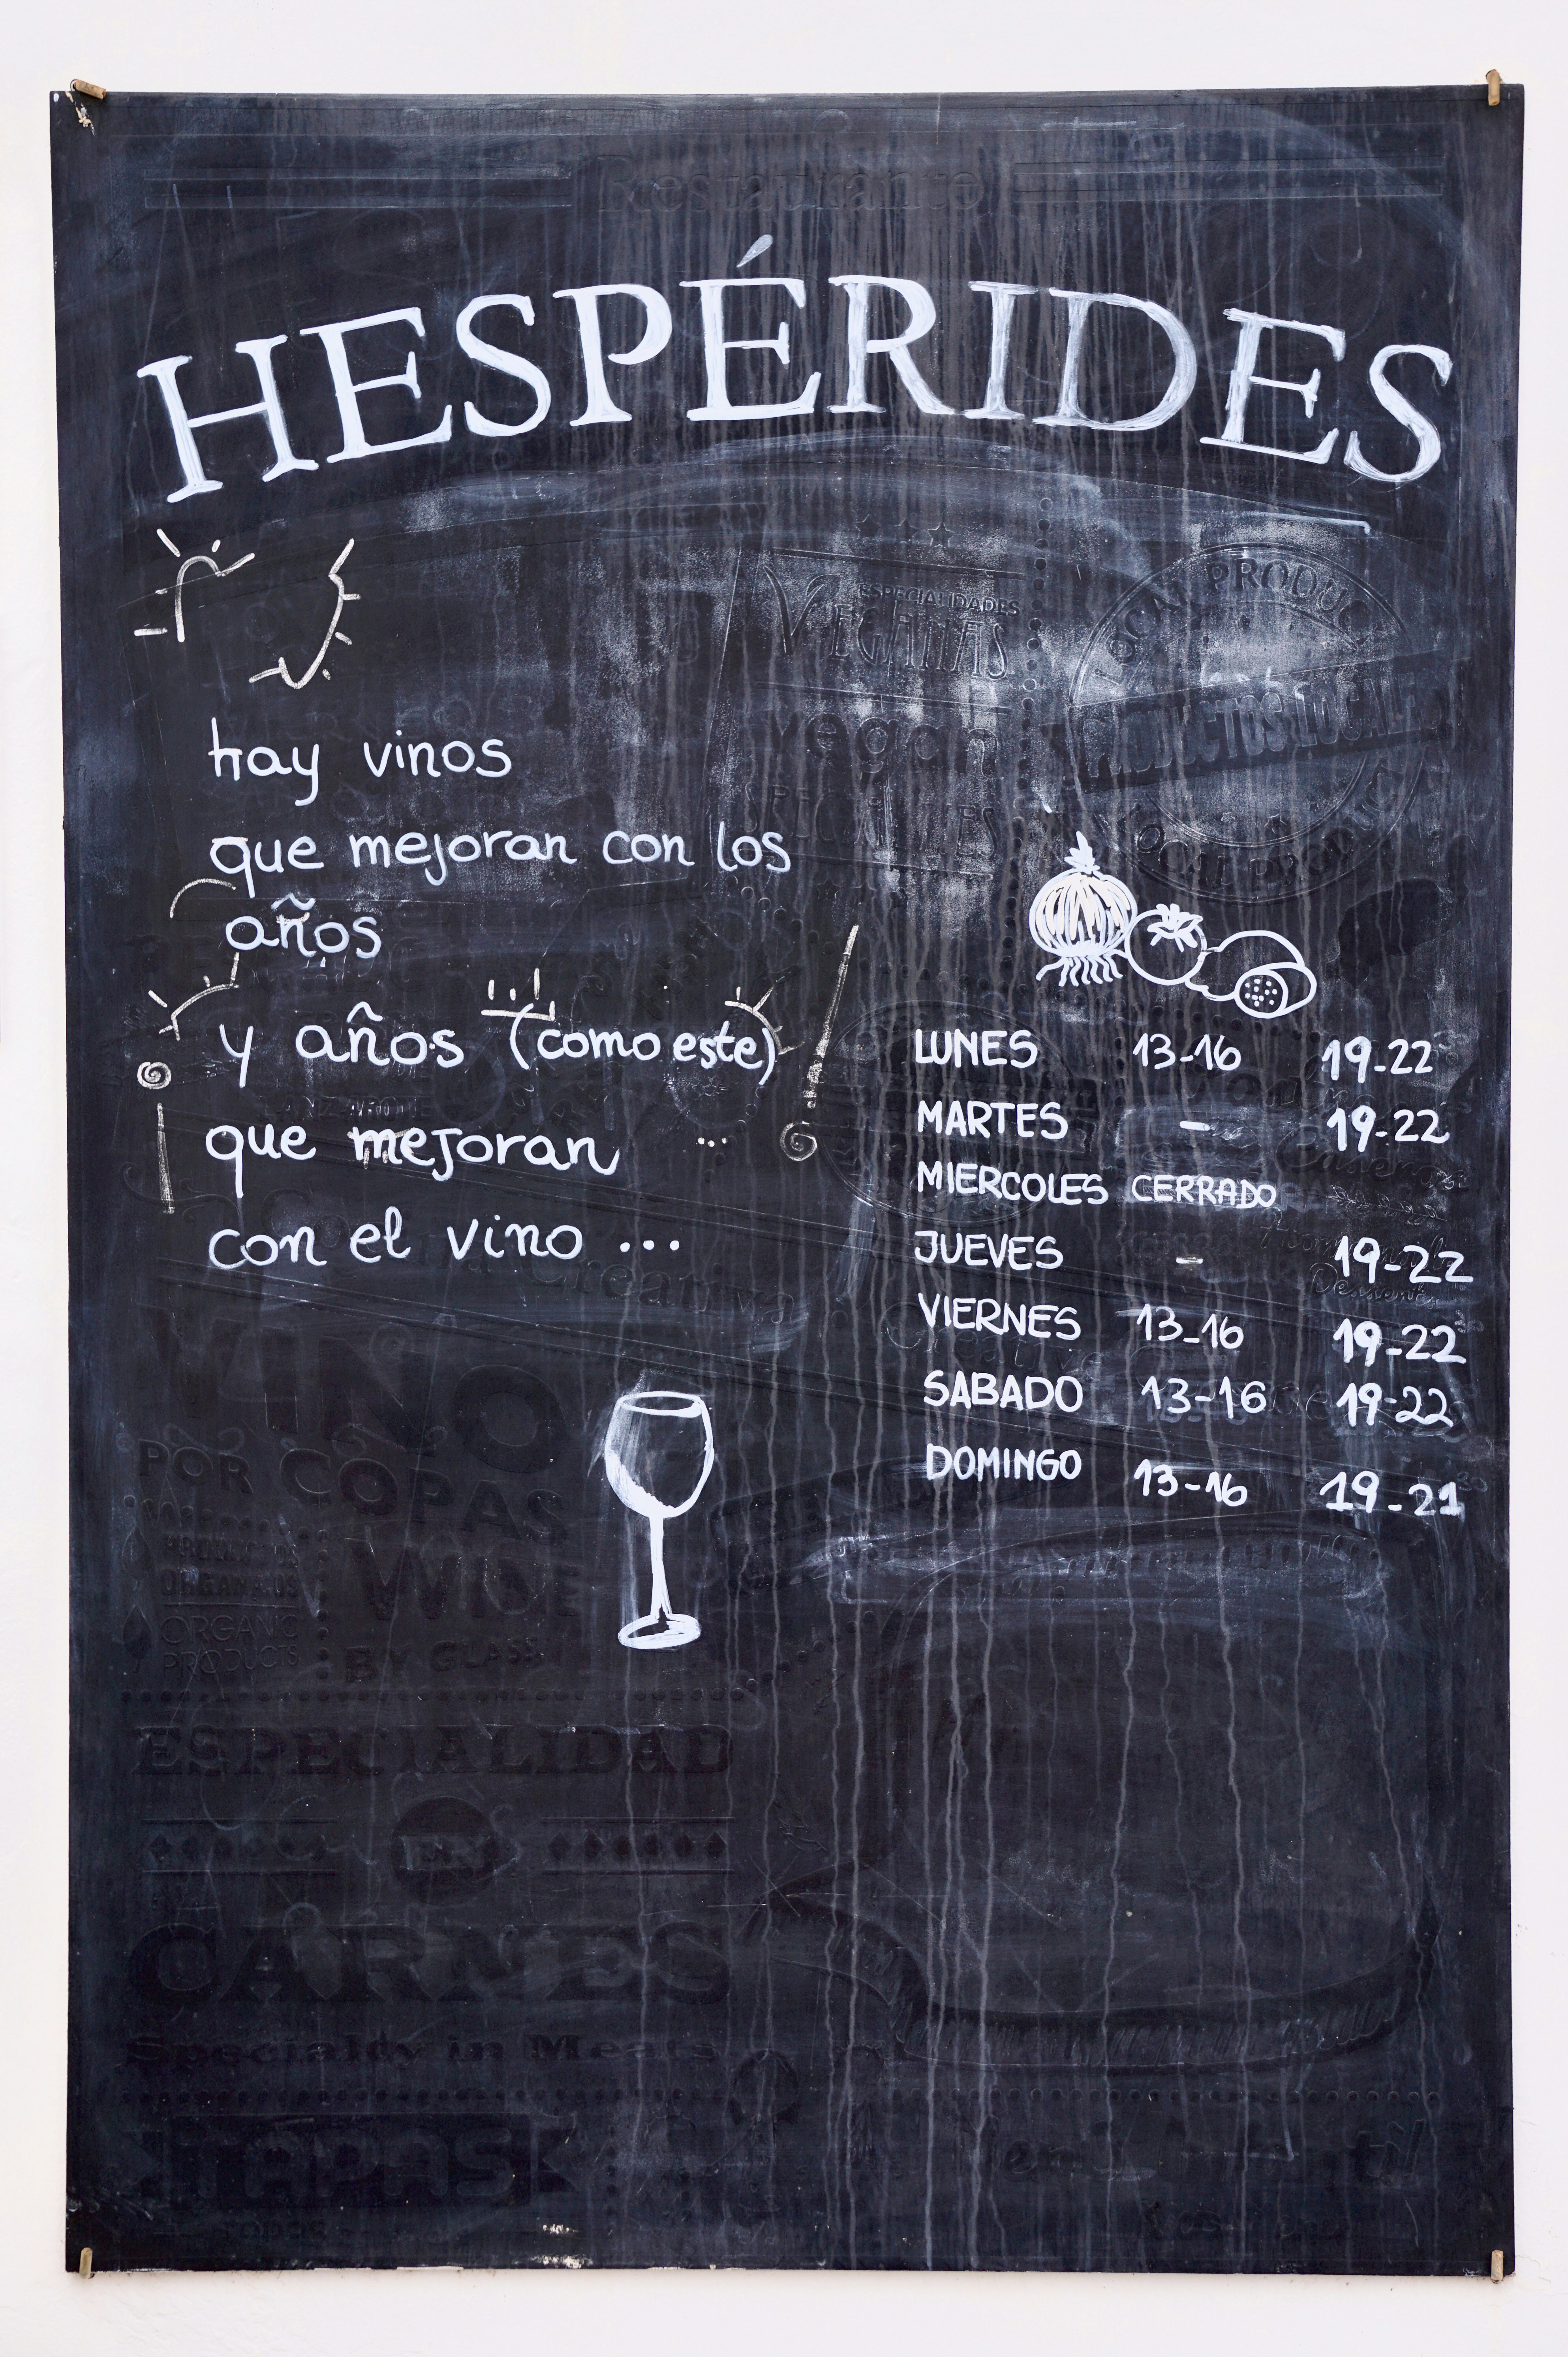 Restaurante
HESPÉRIDES
hay vinos
que mejoran con los
años
y años (como este)
que mejoran ...
con el vino ...
ESPECIALIDADES
VEGANAS
vegan
SPECIALTIES
LOCAL PRODUCT
PRODUCTOS LOCALES
LOCAL PRODUCT
LUNES 13-16 19-22
MARTES - 19-22
MIERCOLES CERRADO
JUEVES - 19-22
VIERNES 13-16 19-22
SABADO 13-16 19-22
DOMINGO 13-16 19-21
Creativa
VINO
POR COPAS
WINE
BY GLASS
PRODUCTOS
ORGANICOS
ORGANIC
PRODUCTS
ESPECIALIDAD
EN
CARNES
Specialty in Meats
TAPAS